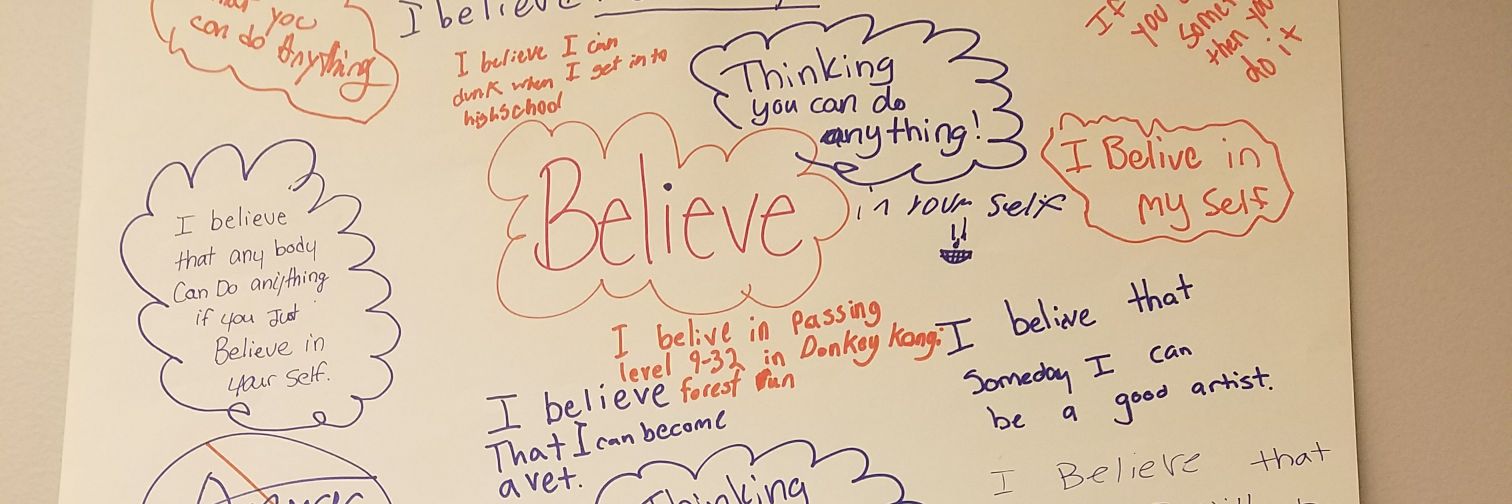 you
can do Anything
I believe
I believe I can
dunk when I get in to
highschool
Thinking
you can do
anything!
If
you
then yo
do it
Believe
in your self
I Belive in
my self
I believe
that any body
Can Do anything
if you Just
Believe in
your self.
I belive in Passing
level 9-32 in Donkey Kong:
forest run
I believe
That I can become
a vet.
I belive that
Someday I can
be a good artist.
I Believe that
Thinking